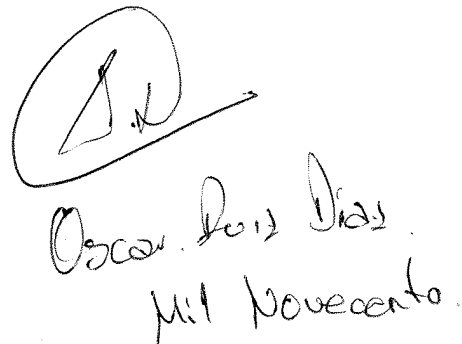 Oscar. Ruiz Diaz.
Mil Novecento.